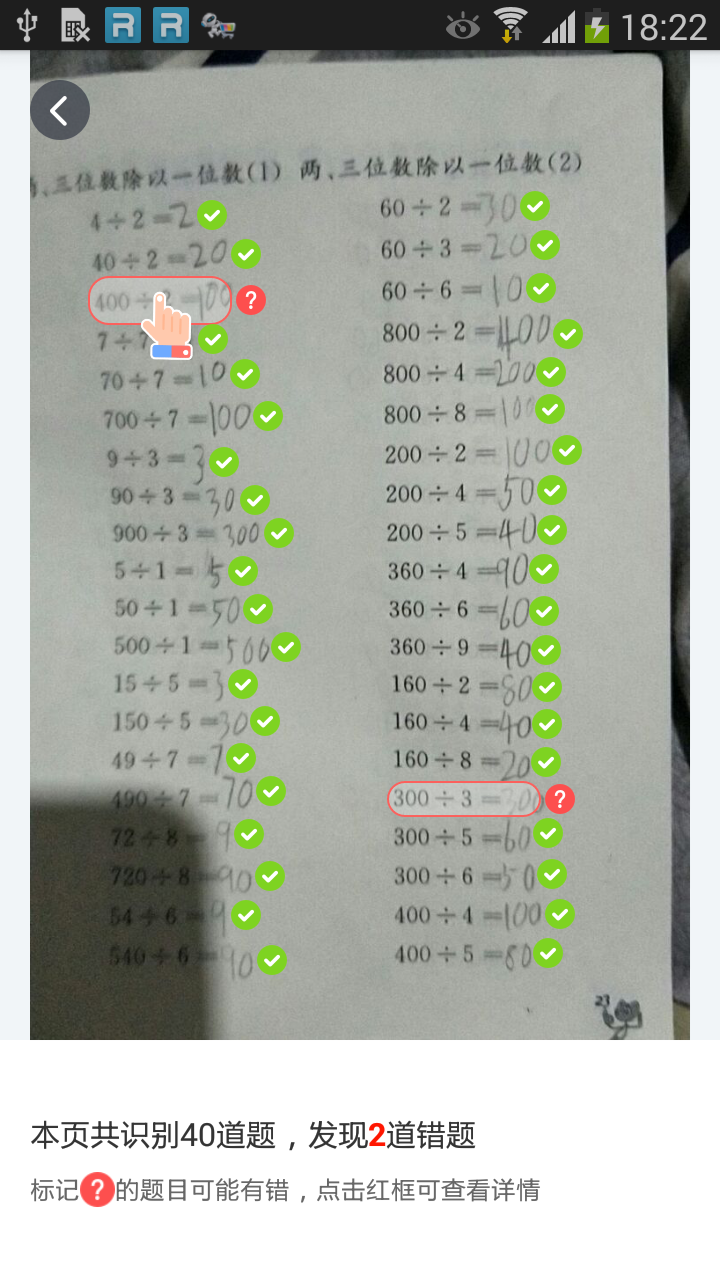 18:22
、三位数除以一位数(1) 两、三位数除以一位数(2)
4÷2=2
40÷2=20
400÷2=100
7÷7
70÷7=10
700÷7=100
9÷3=3
90÷3=30
900÷3=300
5÷1=5
50÷1=50
500÷1=500
15÷5=3
150÷5=30
49÷7=7
490÷7=70
72÷8=9
720÷8=90
54÷6=9
540÷6=90
60÷2=30
60÷3=20
60÷6=10
800÷2=400
800÷4=200
800÷8=100
200÷2=100
200÷4=50
200÷5=40
360÷4=90
360÷6=60
360÷9=40
160÷2=80
160÷4=40
160÷8=20
300÷3=300
300÷5=60
300÷6=50
400÷4=100
400÷5=80
23
本页共识别40道题，发现2道错题
标记?的题目可能有错，点击红框可查看详情